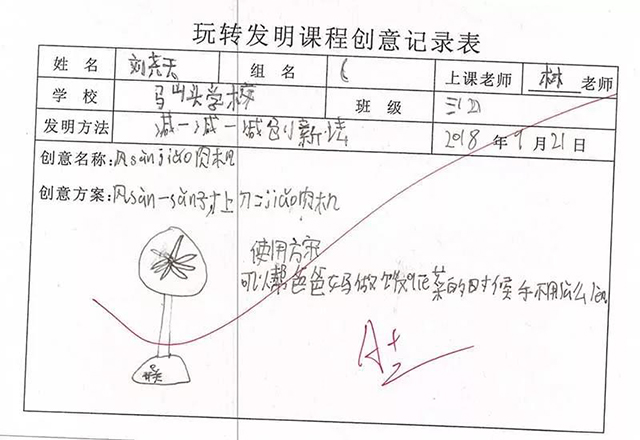 玩转发明课程创意记录表
姓 名 刘尧天 组 名 上课老师 林 老师
学 校 马山头学校 班 级 三(2)
发明方法 减一减 一减创新法 2018 年 9 月 21 日
创意名称:风sàn jiǎo肉机
创意方案:风sàn一sàn 加 jiǎo肉机
使用方案
可以帮爸爸妈妈做饭 菜的时候手不用这么
A+